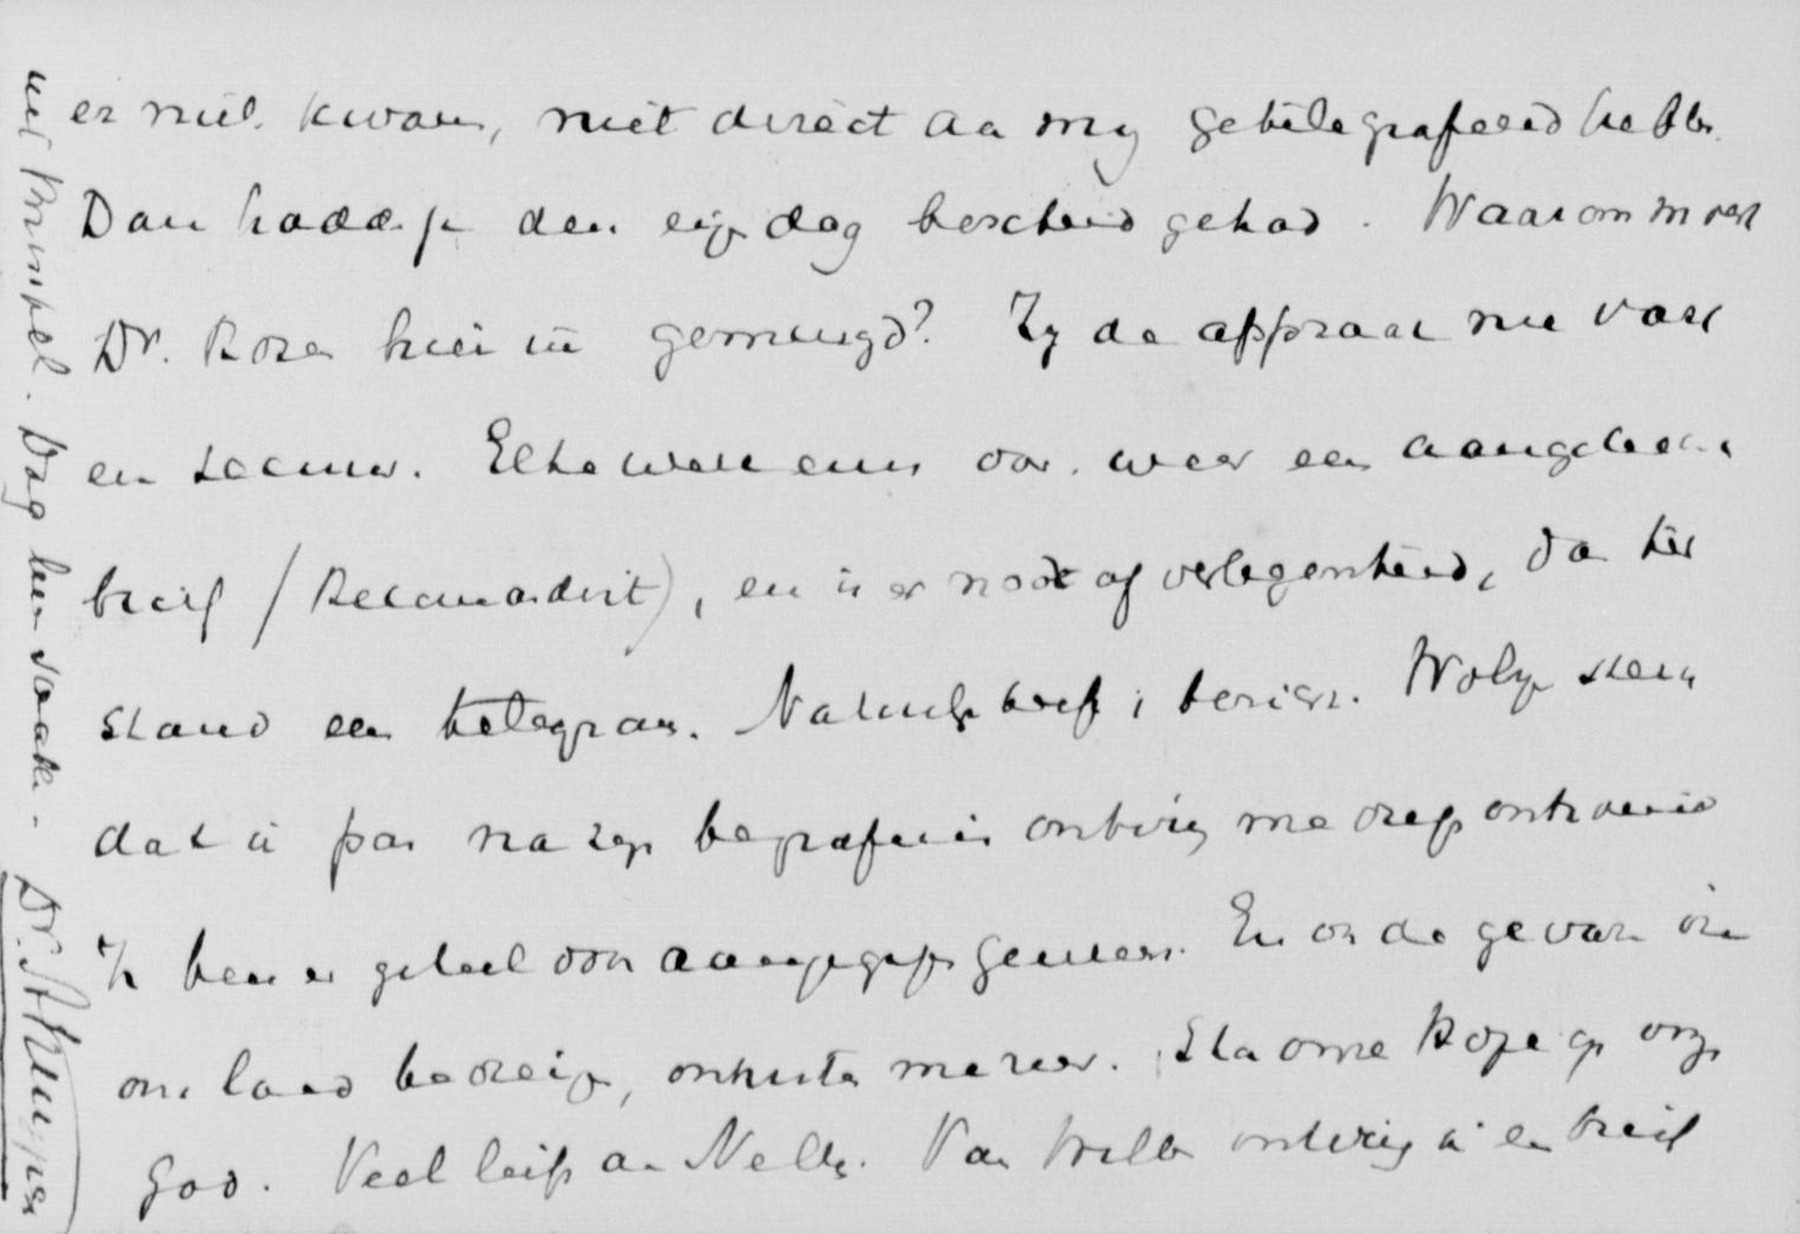 er niet kwam, niet direct aan mij getelegrafeerd hebben.
Dan hadd je den eigen dag bescheid gehad. Waarom moest
Dr. Rozen hierin gemengd? Zij de afspraak nu vast
en zeker. Elke week eens over weer een aangeteekende
brief (Recommandirt), en is er nood of verlegenheid, dan
stand een telegram. Natuurlijk beef ik bericht.
dat ik pas na zijn begrafenis ontving me diep
Ik ben er geheel door aangegrepen geweest. En ook de gevaren die
ons land bedreigen, ontrusten me zeer. Sta onze hope op onzen
God. Veel liefs aan Nelly. Van Willy ontving ik een brief
uit Dag lieve
Dr. A Kuyper